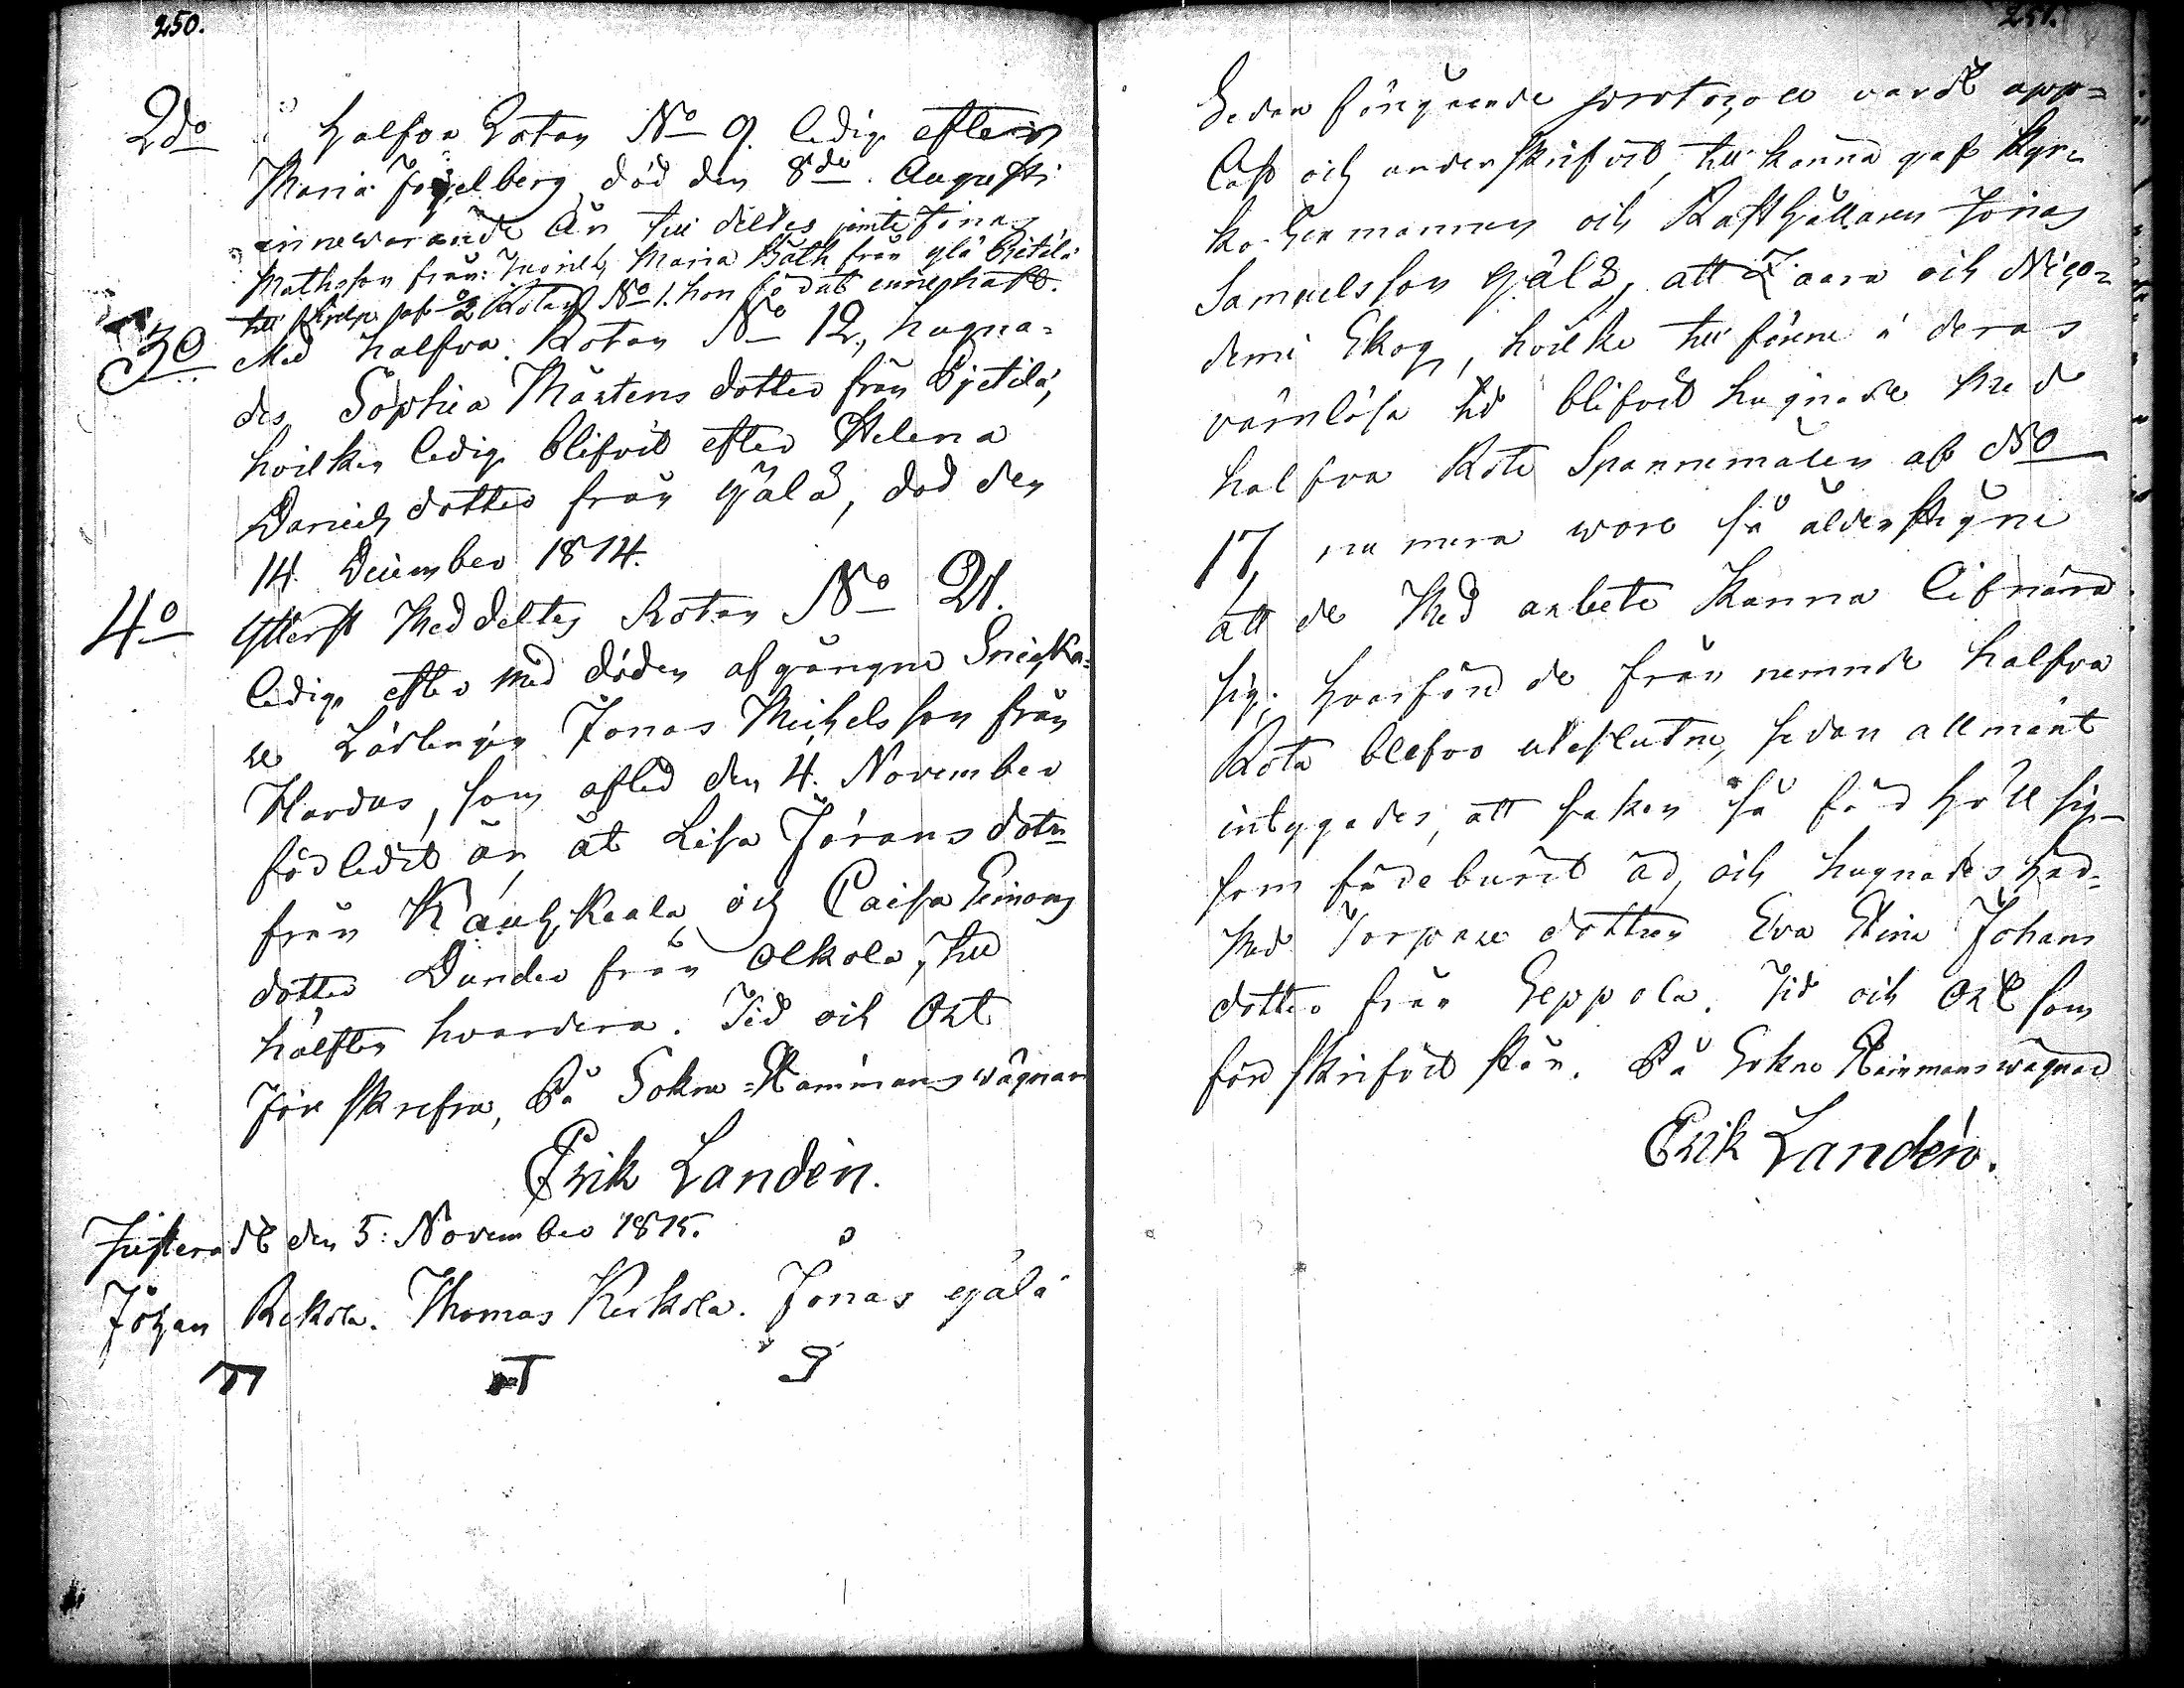 250.
2do Halfva Rotan No 9. ledig efter
Maria Fogelberg död den 8de Augusti
innewarande År till deltes jemte Jonas
Mathsson från Maria Båth från Pietilä
till af 2 Rotan No 1. hon förut innehaft.
3o Med halfva Rotan No 12, hugna-
des Sophia Mårtens dotter från Pjetilä,
hvilken ledig blifvit efter Helena
Daniels dotter från Gjälå, död den
14. December 1814.
4o Ytterst Meddeltes Rotan No 21.
ledig efter med döden afgångne Snicka-
re Lärlingen Jonas Michelsson från
Hardus, som afled den 4. November
förledit år, åt Lisa Jörans dotr
från och Caisa Simons
dotter Dunder från Olkola, till
hälften hvardera. Tid och Ort
för skrefne, På Sokne-Stämmans vägnar
Erik Landén.
Justeradt den 5: November 1815.
Johan Rekola. Thomas Keikola. Jonas gjälå
T T
251.
Sedan föregående protocoll vardt upp-
läst och underskrifvit, till kanna gaf Kyr-
ko hermannen och Rusthållaren Jonas
Samuelsson Gjälå, att Zaara och Nico-
demi Skog, hvilke till förne i deras
värnlösa tid blifvit hugnade med
halfva Rote Spannemålen af No
17, nu mera wore så ålderstigne
att de Med arbete Kunna lifnära
sig; hvarföre de från nemnde halfva
Rota blefvo uteslutne, sedan allmänt
intygades, att saken så för höll sig
som föreburit är, och hugnades här-
Med Torpare dottren Eva Stina Johans
dotter från Seppola. Tid och Ort som
förr skrifvit står. På Sokne Stämmans wägnar
Erik Landén.